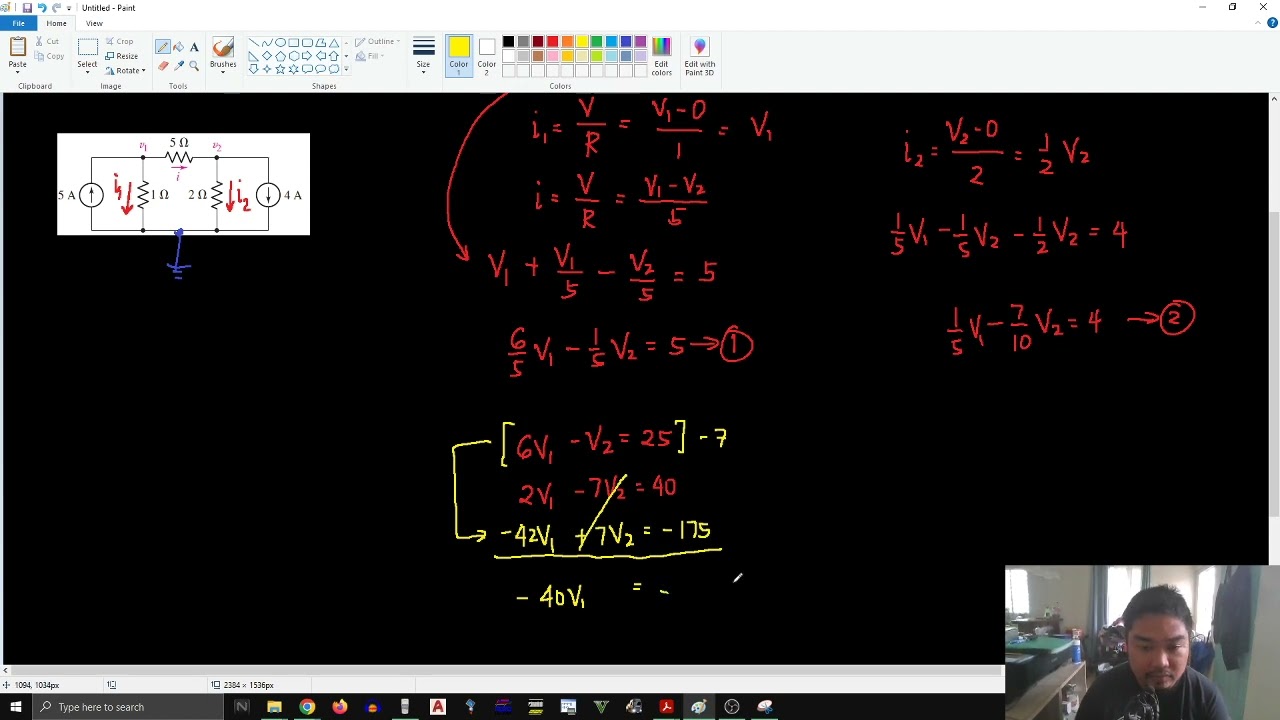 Untitled - Paint
File Home View
Paste Cut Copy Clipboard
Select Crop Resize Rotate Image
Tools
Brushes
Outline Fill Shapes
Size
Color 1 Color 2 Edit colors Colors
Edit with Paint 3D
v₁ 5 Ω v₂
i
5 A i₁ 1 Ω 2 Ω i₂ 4 A
i₁ = V/R = (V₁ - 0)/1 = V₁
i = V/R = (V₁ - V₂)/5
V₁ + V₁/5 - V₂/5 = 5
6/5 V₁ - 1/5 V₂ = 5 → ①
[6V₁ - V₂ = 25] - 7
2V₁ - 7V₂ = 40
-42V₁ + 7V₂ = -175
- 40V₁ = -
i₂ = (V₂ - 0)/2 = 1/2 V₂
1/5 V₁ - 1/5 V₂ - 1/2 V₂ = 4
1/5 V₁ - 7/10 V₂ = 4 → ②
1094, 1034px 2384 × 1536px
Type here to search